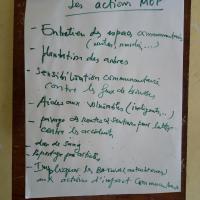 Les action MVP
- Entretien des espaces communautaires
(routes, marché, ...)
- Plantation des arbres
- Sensibilisation communautaire
contre les feux de brousses
- Aides aux vulnérables (indigents, ...)
- pavage des routes et sentiers pour lutter
contre les accidents
- don de sang
- Reperage
- Impliquer les
aux actions d'impact communautaire